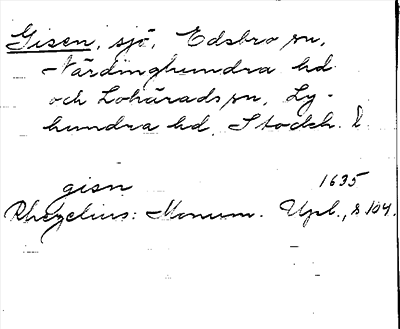 Gisen, sjö, Edsbro sn,
Närdinghundra hd
och Lohärads sn, Ly-
hundra hd, Stockh. l.
gisn 1635
Rhezelius: Monum. Upl., s 104.